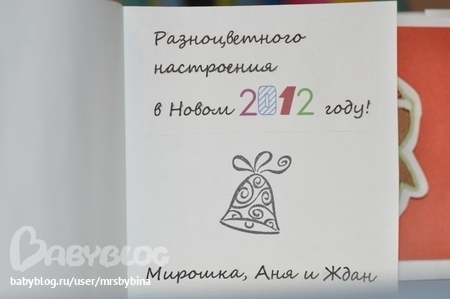 Разноцветного
настроения
в Новом 2012 году!
BABYBLOG
babyblog.ru/user/mrsbybina
Мирошка, Аня и Ждан